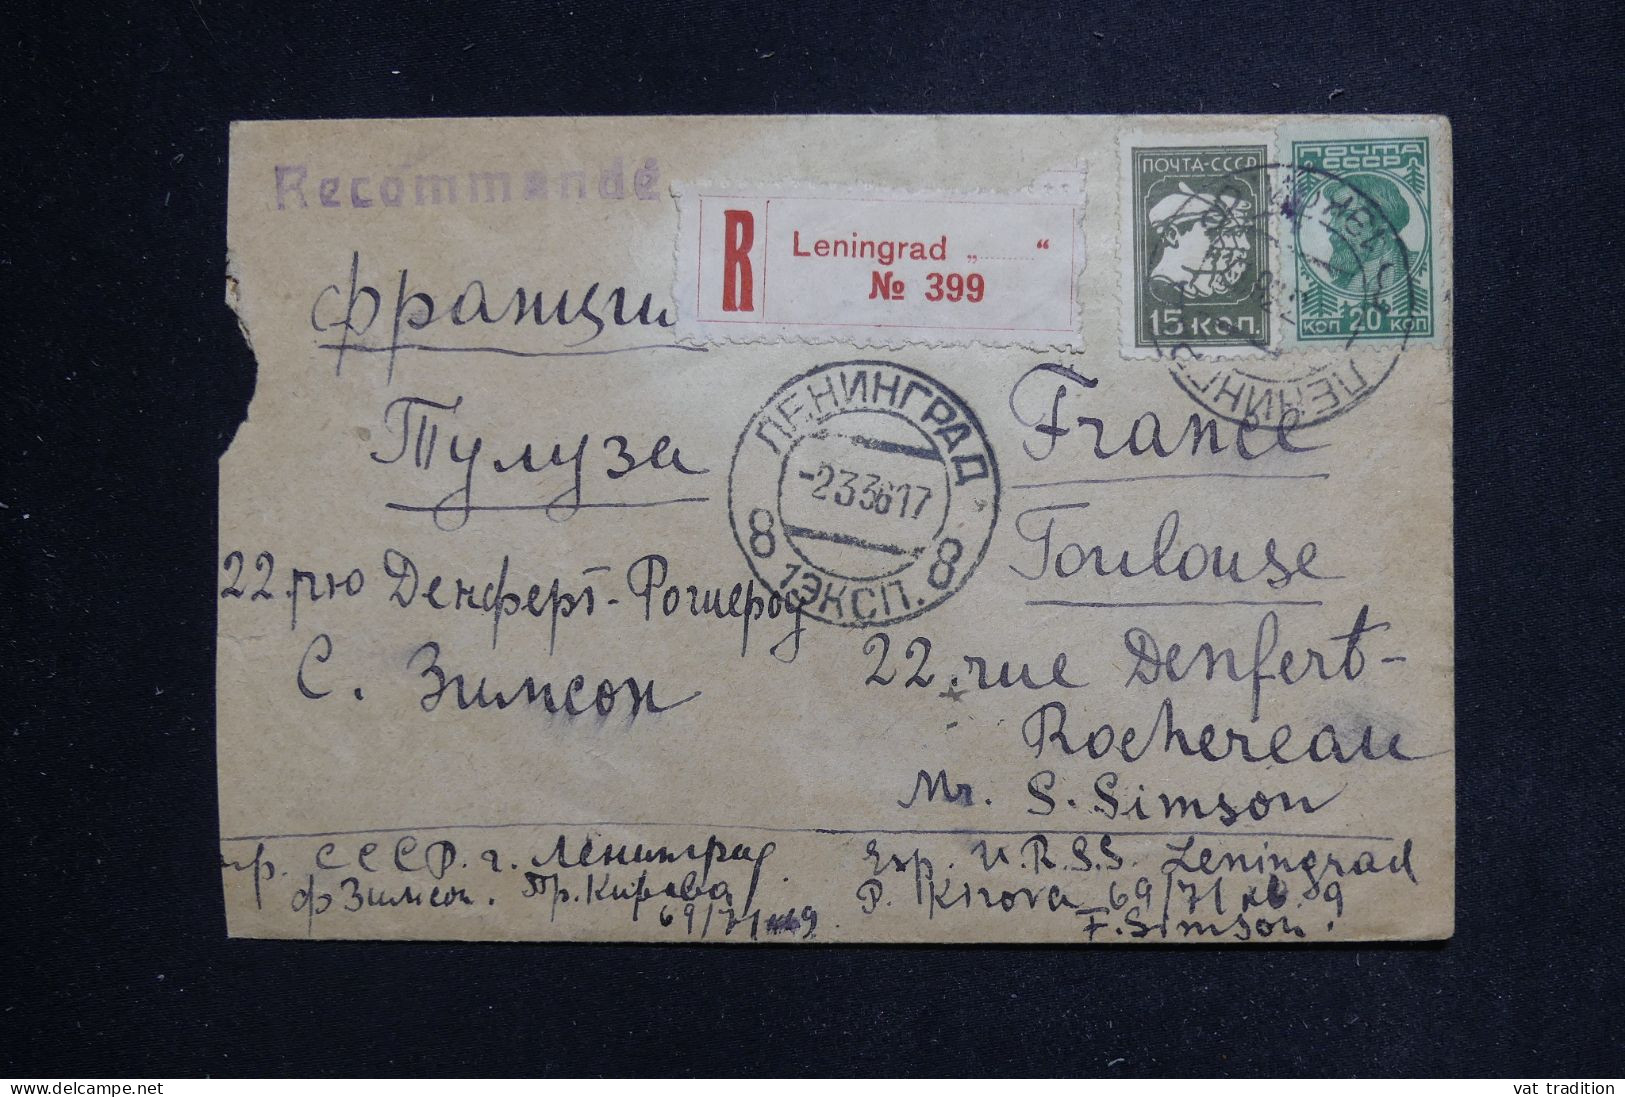 Recommandé
R
Leningrad „ “
№ 399
ПОЧТА-СССР
15 КОП.
ПОЧТА
СССР
КОП 20 КОП
ЛЕНИНГРАД
Франция
Тулуза
22. рю Денферт-Рошерод
С. Зимсон
ЛЕНИНГРАД
-23 36 17
8 8
1 ЭКСП.
France
Toulouse
22. rue Denfert-
Rochereau
Mr. S. Simson
СССР. г. Ленинград
Ф Зимсон. Пр. Кирова
69/71
Exp. U.R.S.S. Leningrad
P. Kirova 69/71 кв. 9
F. Simson.
www.delcampe.net
vat tradition